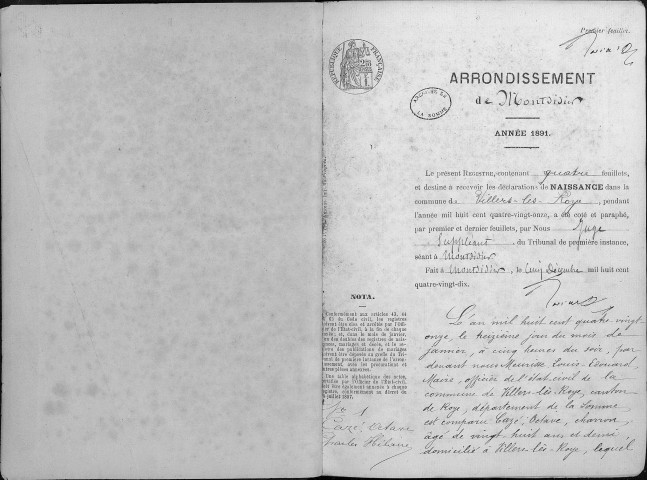 Premier feuillet.
RÉPUBLIQUE FRANÇAISE
ARRONDISSEMENT
de Montdidier
ARCHIVES DE LA SOMME
ANNÉE 1891.
Le présent REGISTRE, contenant quatre feuillets,
et destiné à recevoir les déclarations de NAISSANCE dans la
commune de Villers-les-Roye, pendant
l'année mil huit cent quatre-vingt-onze, a été coté et paraphé,
par premier et dernier feuillets, par Nous Juge
Suppléant du Tribunal de première instance,
séant à Montdidier
Fait à Montdidier, le Cinq Décembre mil huit cent
quatre-vingt-dix.
NOTA.
Conformément aux articles 43, 44
et 63 du Code civil, les registres
doivent être clos et arrêtés par l'Offi-
cier de l'État-civil, à la fin de chaque
et, dans le mois de janvier,
un des doubles des registres de nais-
sances, mariages, et décès, et le re-
gistre des publications de mariages
doivent être déposés au greffe du Tri-
bunal de première instance de l'arron-
dissement, avec les procurations et
autres pièces annexées.
Une table alphabétique des actes,
par l'Officier de l'État-civil,
doit être également annexée à chaque
registre, conformément au décret du
juillet 1807.
No 1
Cazé, Octave
Charles
L'an mil huit cent quatre vingt
onze, le treizième jour du mois de
janvier, à cinq heures du soir, par
devant nous Léonard,
Maire, officier de l'état-civil de la
commune de Villers-lès-Roye, canton
de Roye, département de la Somme,
est comparu Cazé, Octave, charron,
âgé de vingt-huit ans et demi,
domicilié à Villers-lès-Roye, lequel